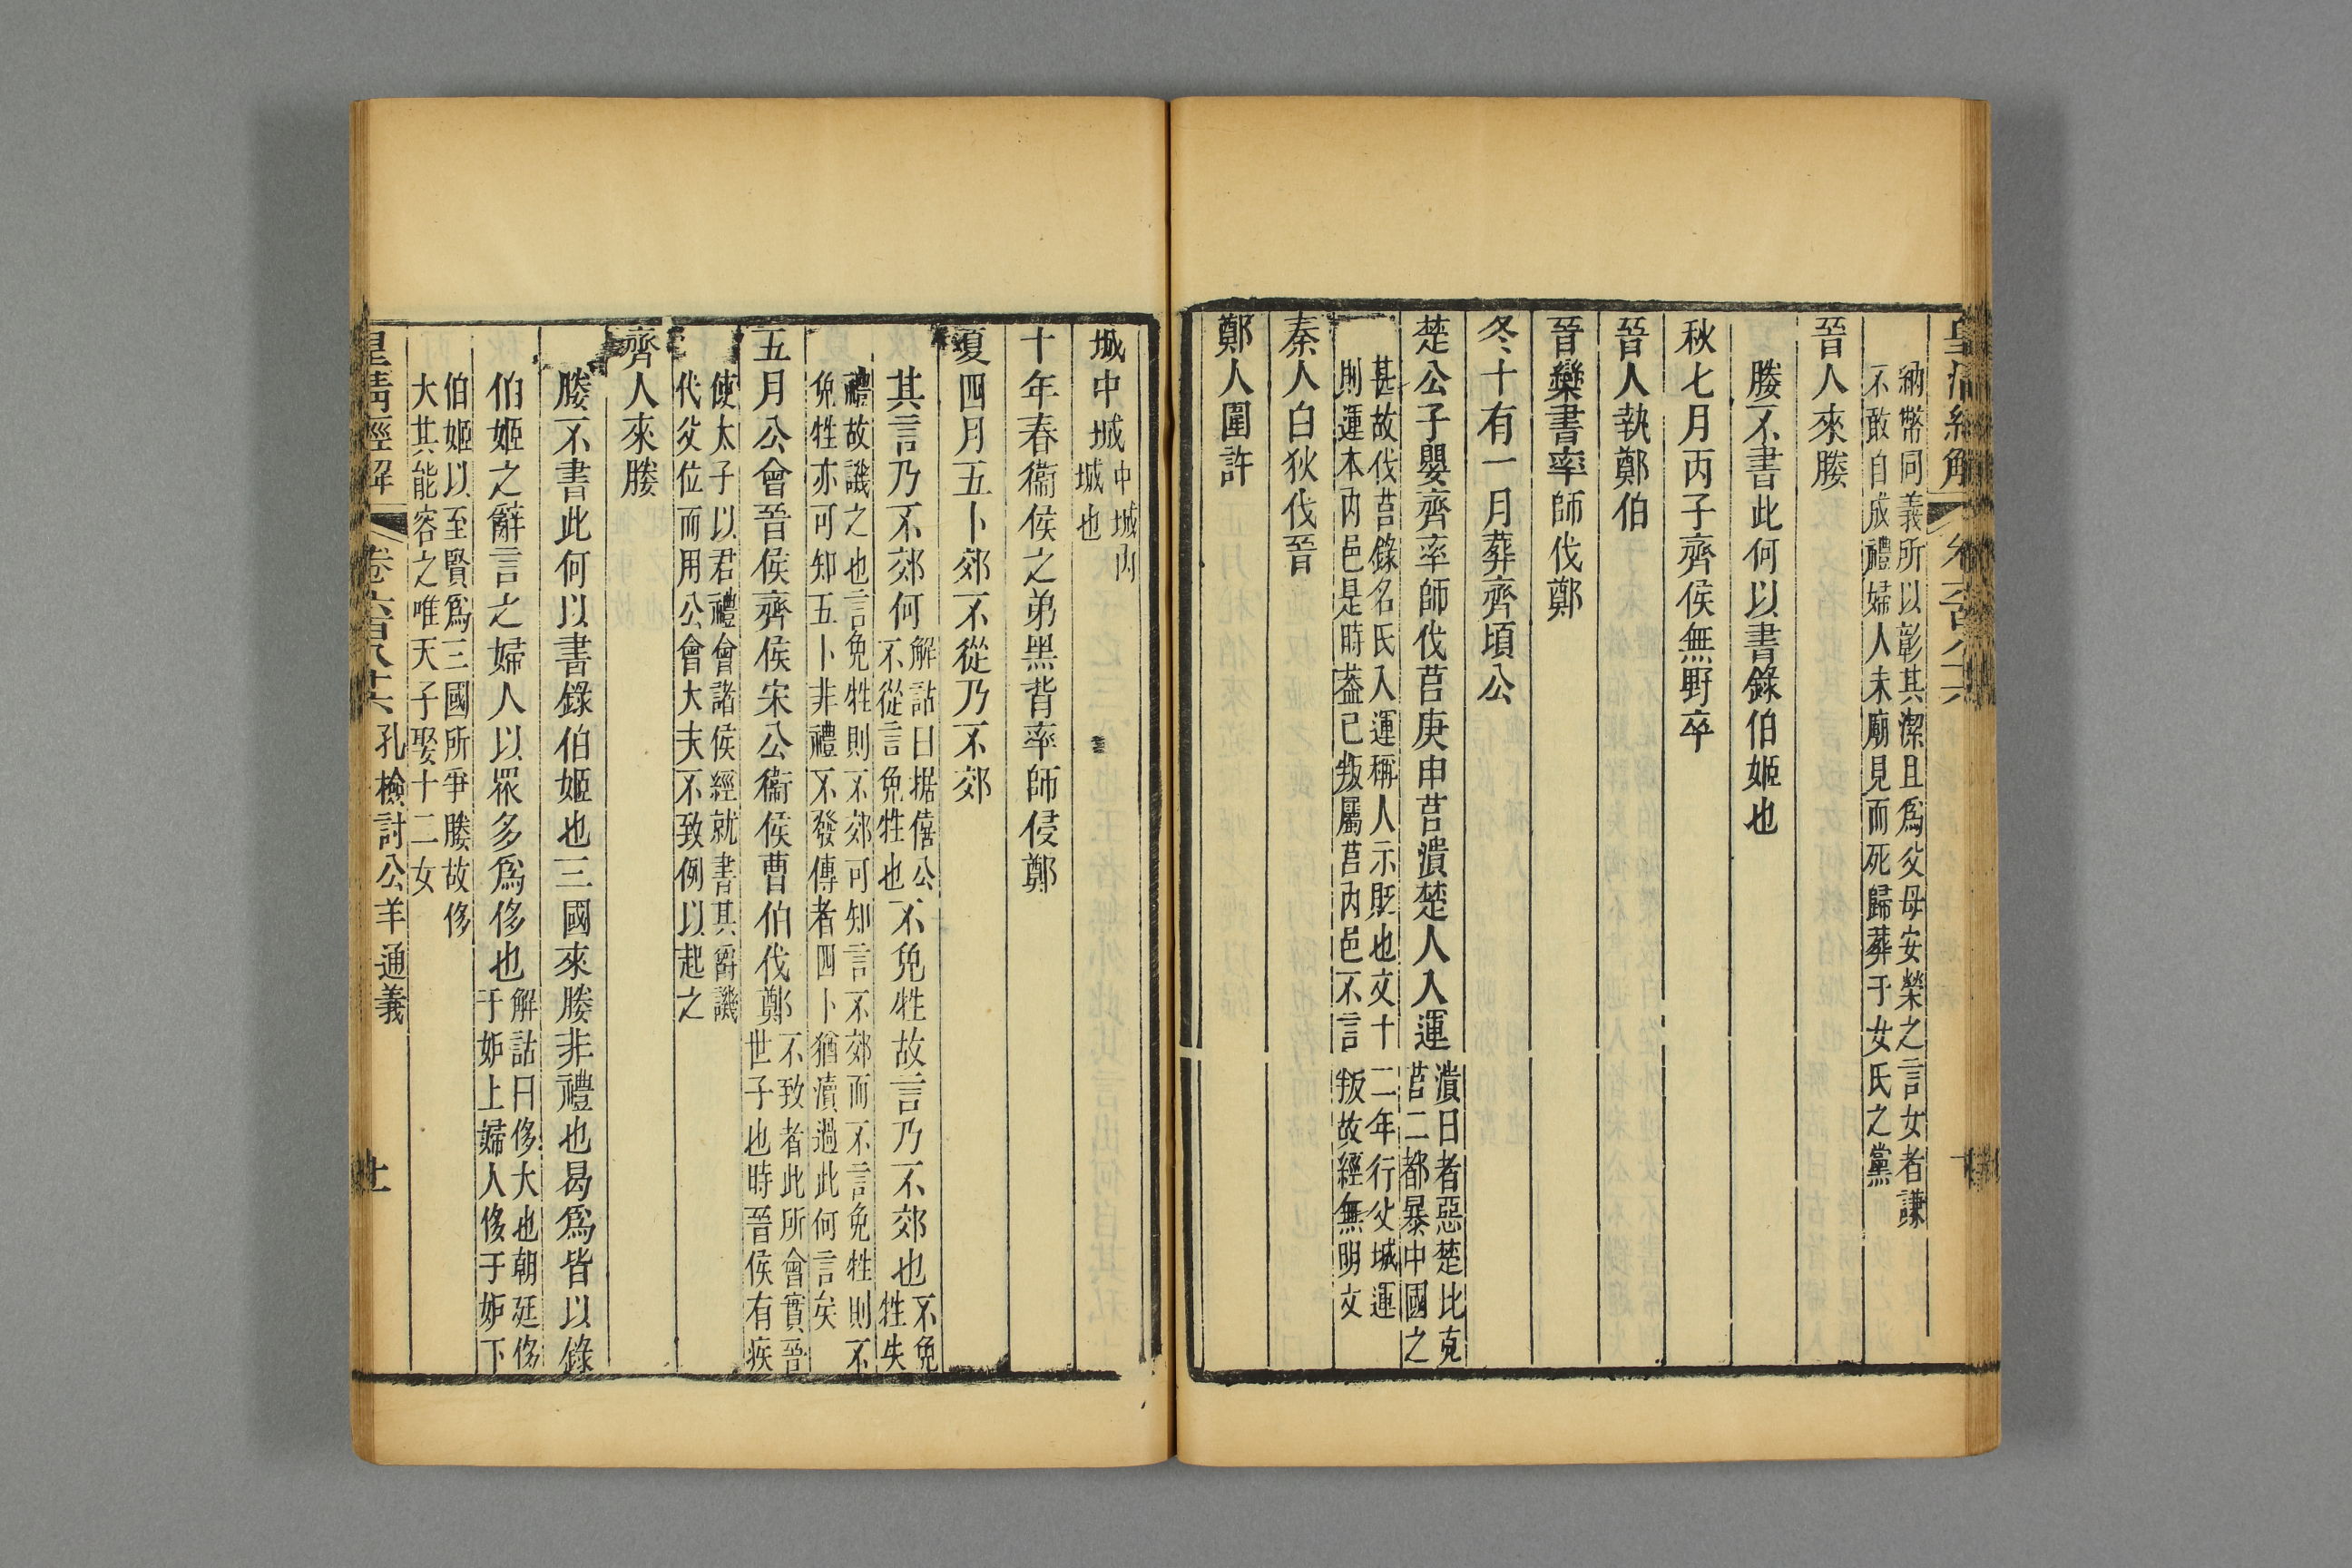 皇清經解 卷六百八十六
納幣同義所以彰其潔且爲父母安榮之言女者謙
不敢自成禮婦人未廟見而死歸葬于女氏之黨
晉人來媵
媵不書此何以書錄伯姬也
秋七月丙子齊侯無野卒
晉人執鄭伯
晉欒書率師伐鄭
冬十有一月葬齊頃公
楚公子嬰齊率師伐莒庚申莒潰楚人入運
潰日者惡楚比克
莒二都暴中國之
甚故伐莒錄名氏入運稱人示貶也文十二年行父城運
則運本內邑是時葢已叛屬莒內邑不言叛故經無明文
秦人白狄伐晉
鄭人圍許
城中城
中城內
城也
十年春衞侯之弟黑背率師侵鄭
夏四月五卜郊不從乃不郊
其言乃不郊何
解詁曰据僖公
不從言免牲也
不免牲故言乃不郊也
不免
牲失
禮故譏之也言免牲則不郊可知言不郊而不言免牲則不
免牲亦可知五卜非禮不發傳者四卜猶瀆過此何言矣
五月公會晉侯齊侯宋公衞侯曹伯伐鄭
不致者此所會實晉
世子也時晉侯有疾
使太子以君禮會諸侯經就書其爵譏
代父位而用公會大夫不致例以起之
齊人來媵
媵不書此何以書錄伯姬也三國來媵非禮也曷爲皆以錄
伯姬之辭言之婦人以眾多爲侈也
解詁曰侈大也朝廷侈
于妒上婦人侈于妒下
伯姬以至賢爲三國所爭媵故侈
大其能容之唯天子娶十二女
皇清經解 卷六百八十六 孔檢討公羊通義 十